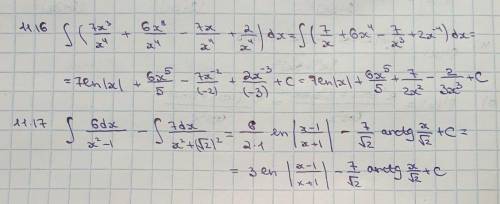 11.16 ∫(7x³/x⁴ + 6x⁸/x⁴ - 7x/x⁴ + 2/x⁴)dx = ∫(7/x + 6x⁴ - 7/x³ + 2x⁻⁴)dx =
= 7en|x| + 6x⁵/5 - 7x⁻²/(-2) + 2x⁻³/(-3) + C = 7en|x| + 6x⁵/5 + 7/2x² - 2/3x³ + C
11.17 ∫ 6dx/x²-1 - ∫ 7dx/x²+(√2)² = 6/2·1 en|x-1/x+1| - 7/√2 arctg x/√2 + C =
= 3en|x-1/x+1| - 7/√2 arctg x/√2 + C